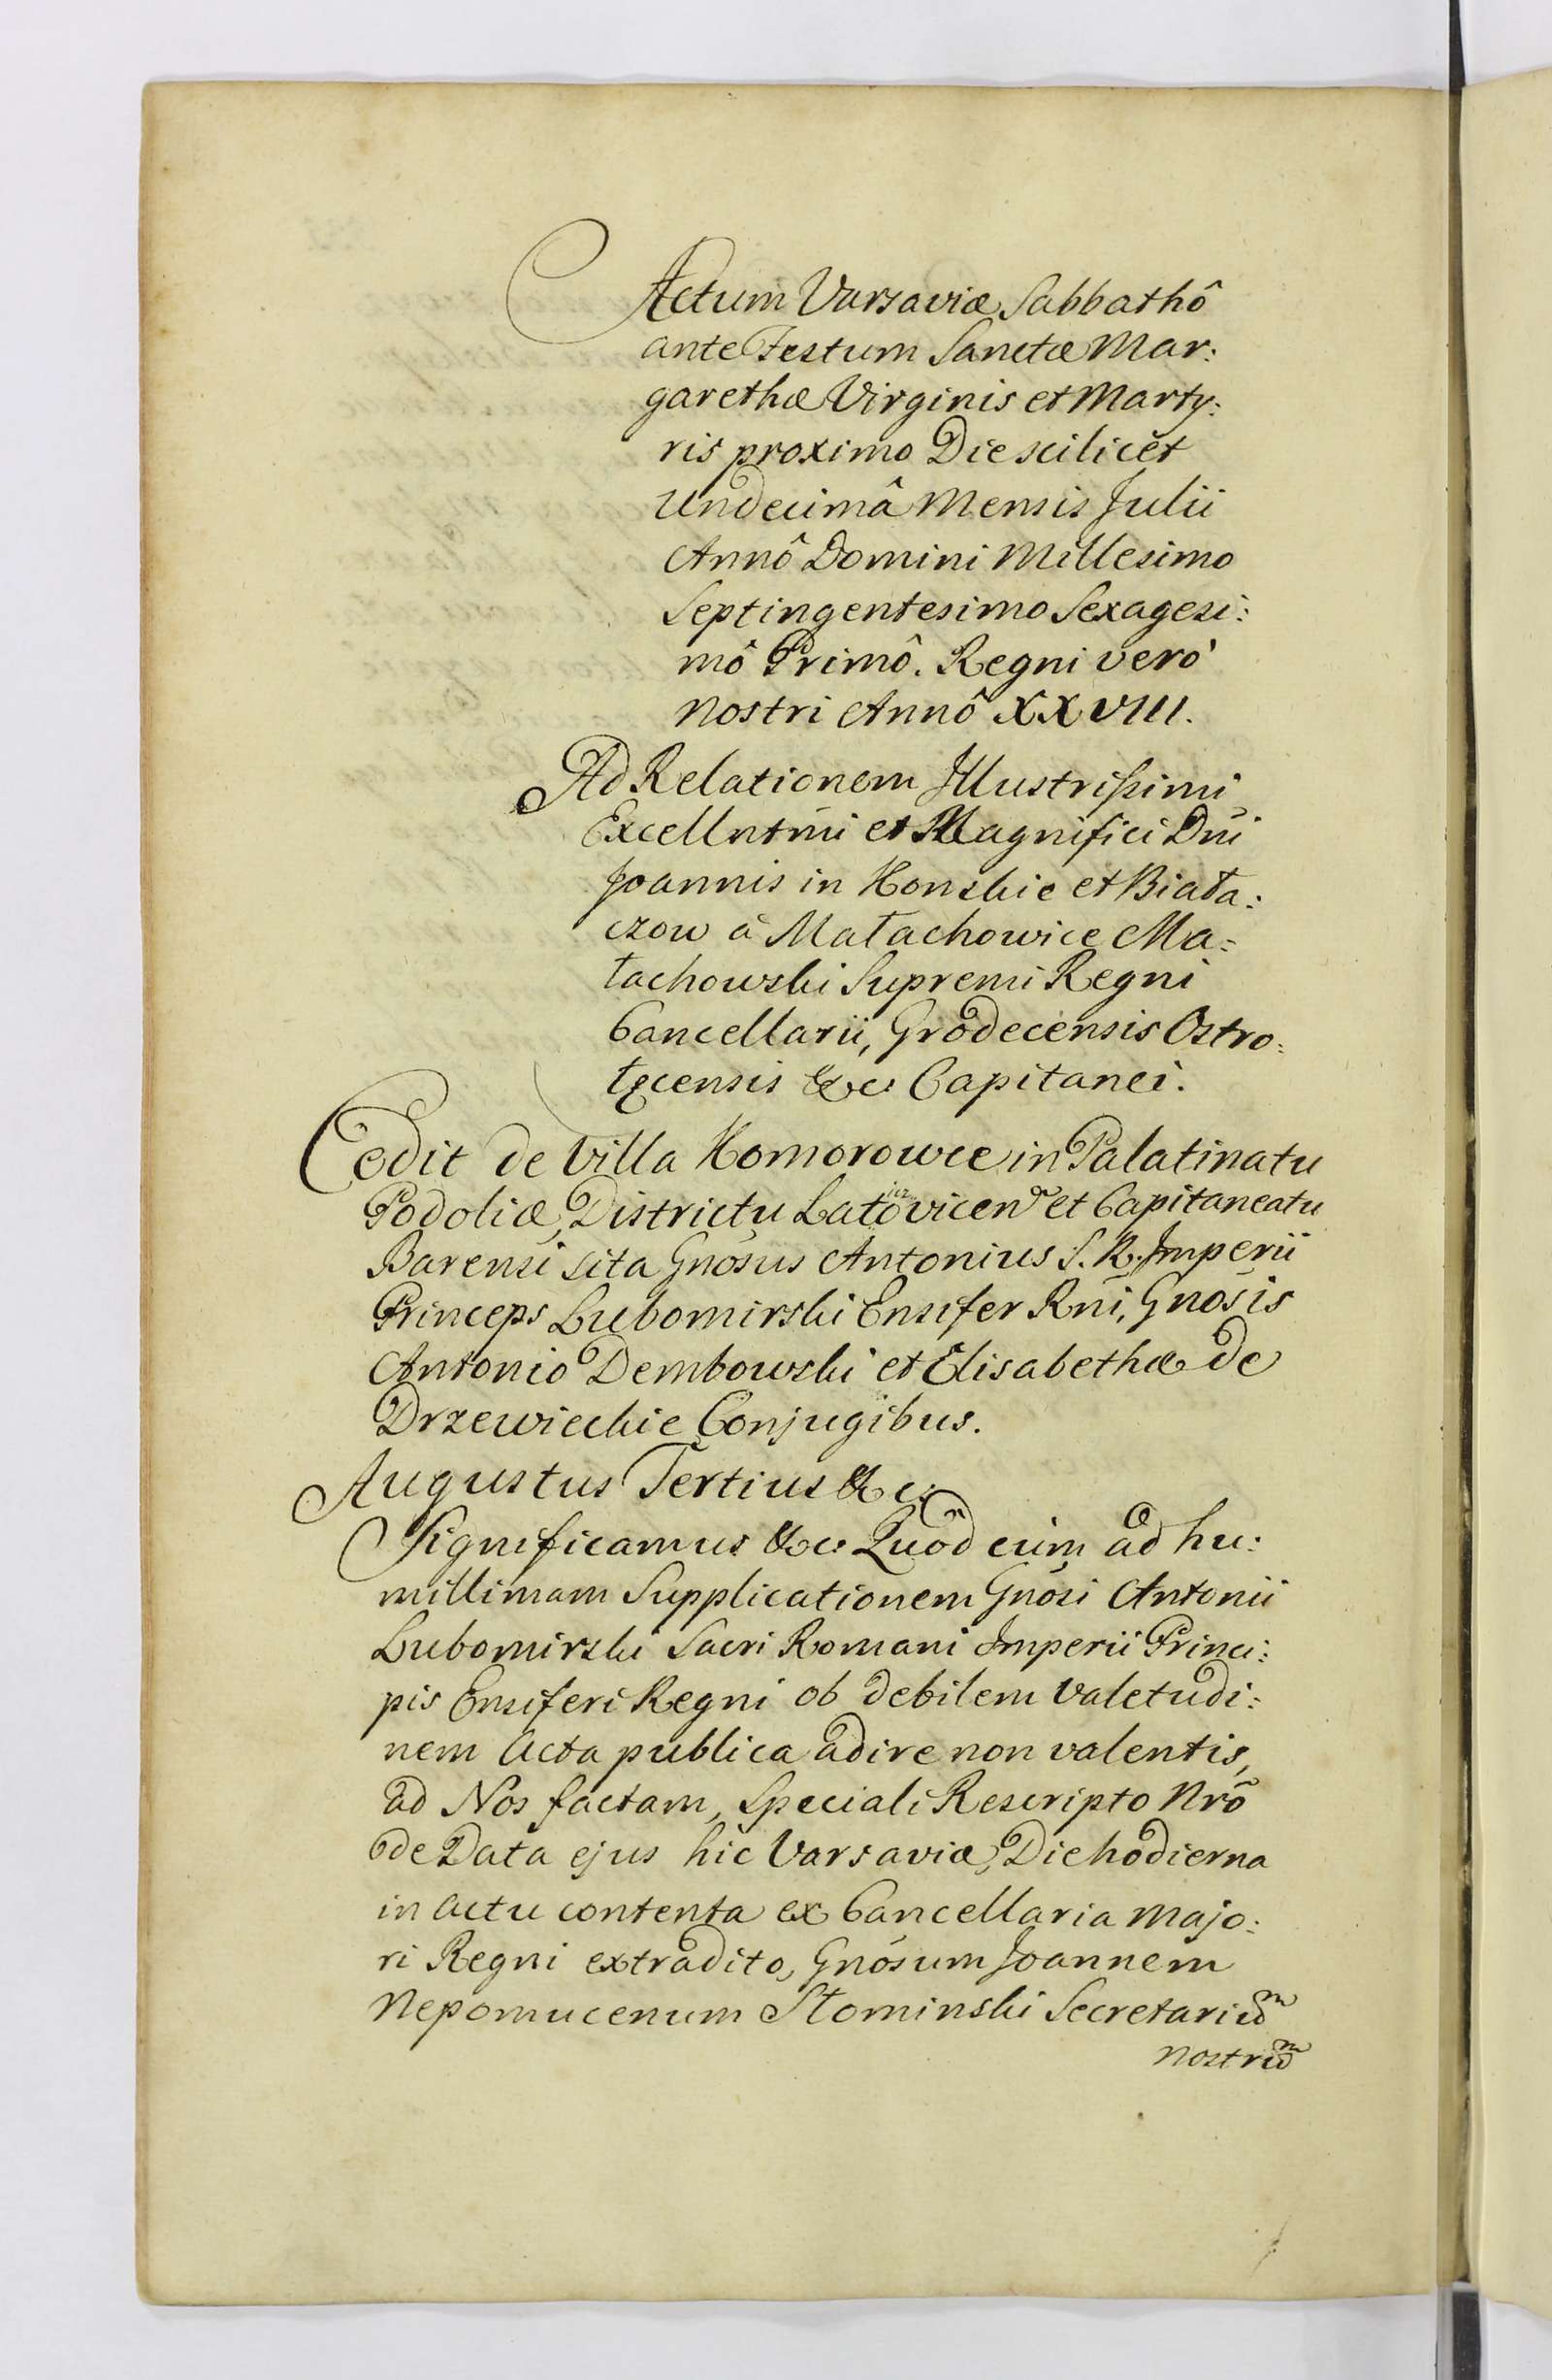 Actum Varsaviæ Sabbathô
ante Festum Sanctæ Mar:
garethæ Virginis et Marty:
ris proximo Die scilicèt
undecimâ Mensis Julii
Annô Domini Millesimo
Septingentesimo Sexagesi:
mô Primô. Regni verò
nostri Annô XXVIII.
Ad Relationem Illustrissimi
Excellntmi et Magnifici Dni
Joannis in Konskie et Biała:
czow à Małachowice Ma=
łachowski Supremi Regni
Cancellarii, Grodecensis Ostro:
łęcensis &c Capitanei.
Cedit de Villa Komorowce in Palatinatu
Podoliæ, Districtu Latovicen et Capitaneatu
Barensi sita Gnosus Antonius S. R. Imperii
Princeps Lubomirski Ensifer Rni, Gnosis
Antonio Dembowski et Elisabethæ de
Drzewieckie Conjugibus.
Augustus Tertius &c
Significamus &c Quod cùm ad hu:
millimam Supplicationem Gnosi Antonii
Lubomirski Sacri Romani Imperii Princi:
pis Ensiferi Regni ob debilem Valetudi:
nem Acta publica adire non valentis,
ad Nos factam, Speciali Rescripto Nrõ
de Data ejus hic Varsaviæ, Die hodierna
in actu contenta ex Cancellaria Majo:
ri Regni extradito, Gnosum Joannem
Nepomucenum Słominski Secretariũm
nostrũm